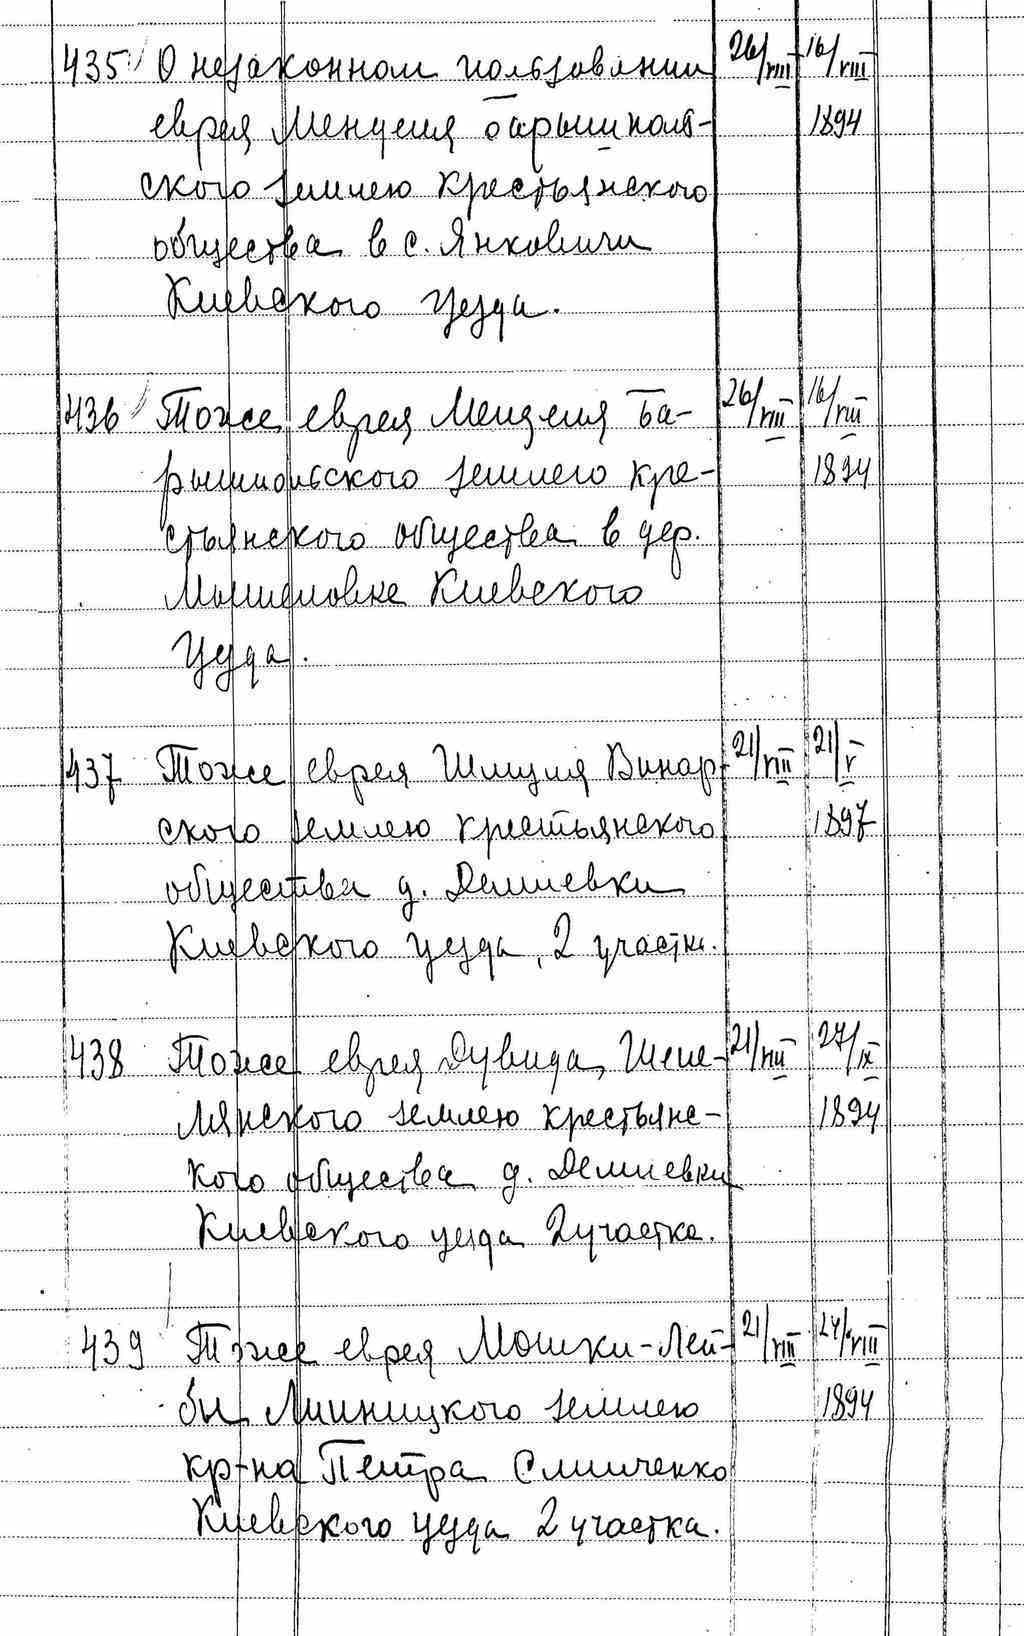 435 О незаконном пользовании 26/VIII 16/VIII
еврея Менделя Барышполь- 1894
ского землею крестьянского
общества в с. Янковичи
Киевского уезда.
436 Тоже еврея Менделя Ба- 26/VIII 16/VIII
рышпольского землею кре- 1894
стьянского общества в дер.
Киевского
уезда.
437 Тоже еврея Шмуля Винар- 21/VIII 21/V
ского землею крестьянского 1897
общества д. Демиевки
Киевского уезда, 2 участк.
438 Тоже еврея Дувида Шепе- 21/VIII 27/IX
лянского землею крестьянс- 1894
кого общества д. Демиевки
Киевского уезда 2 участка.
439 Тоже еврея Мошки-Лей- 21/VIII 24/VIII
бы Липницкого землею 1894
кр-на Петра Слипченко
Киевского уезда 2 участка.